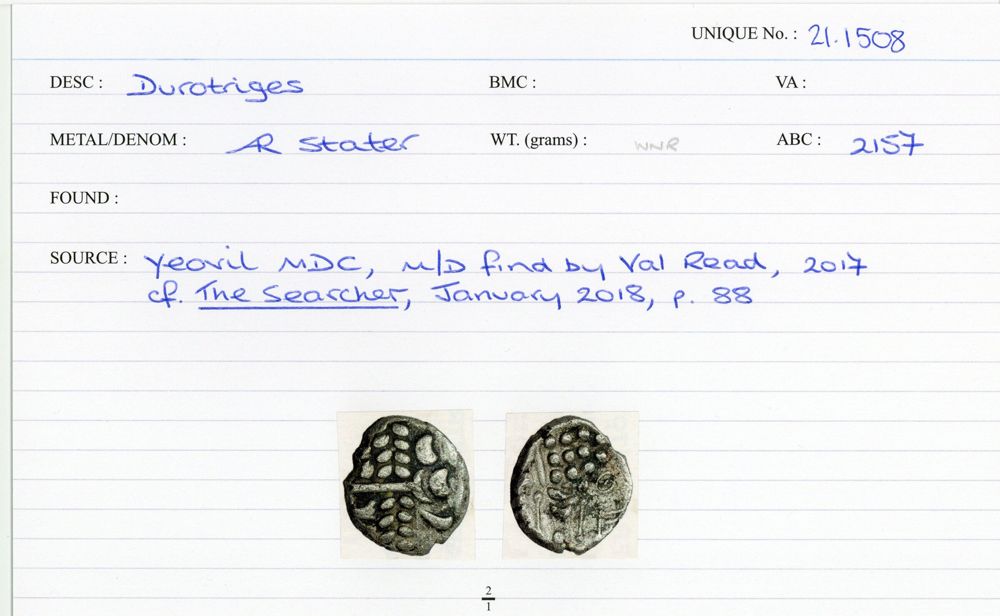 UNIQUE No. : 21.1508
DESC : Durotriges BMC : VA :
METAL/DENOM : AR Stater WT. (grams) : WNR ABC : 2157
FOUND :
SOURCE : Yeovil MDC, M/D find by Val Read, 2017
cf. The Searcher, January 2018, p. 88
2
1